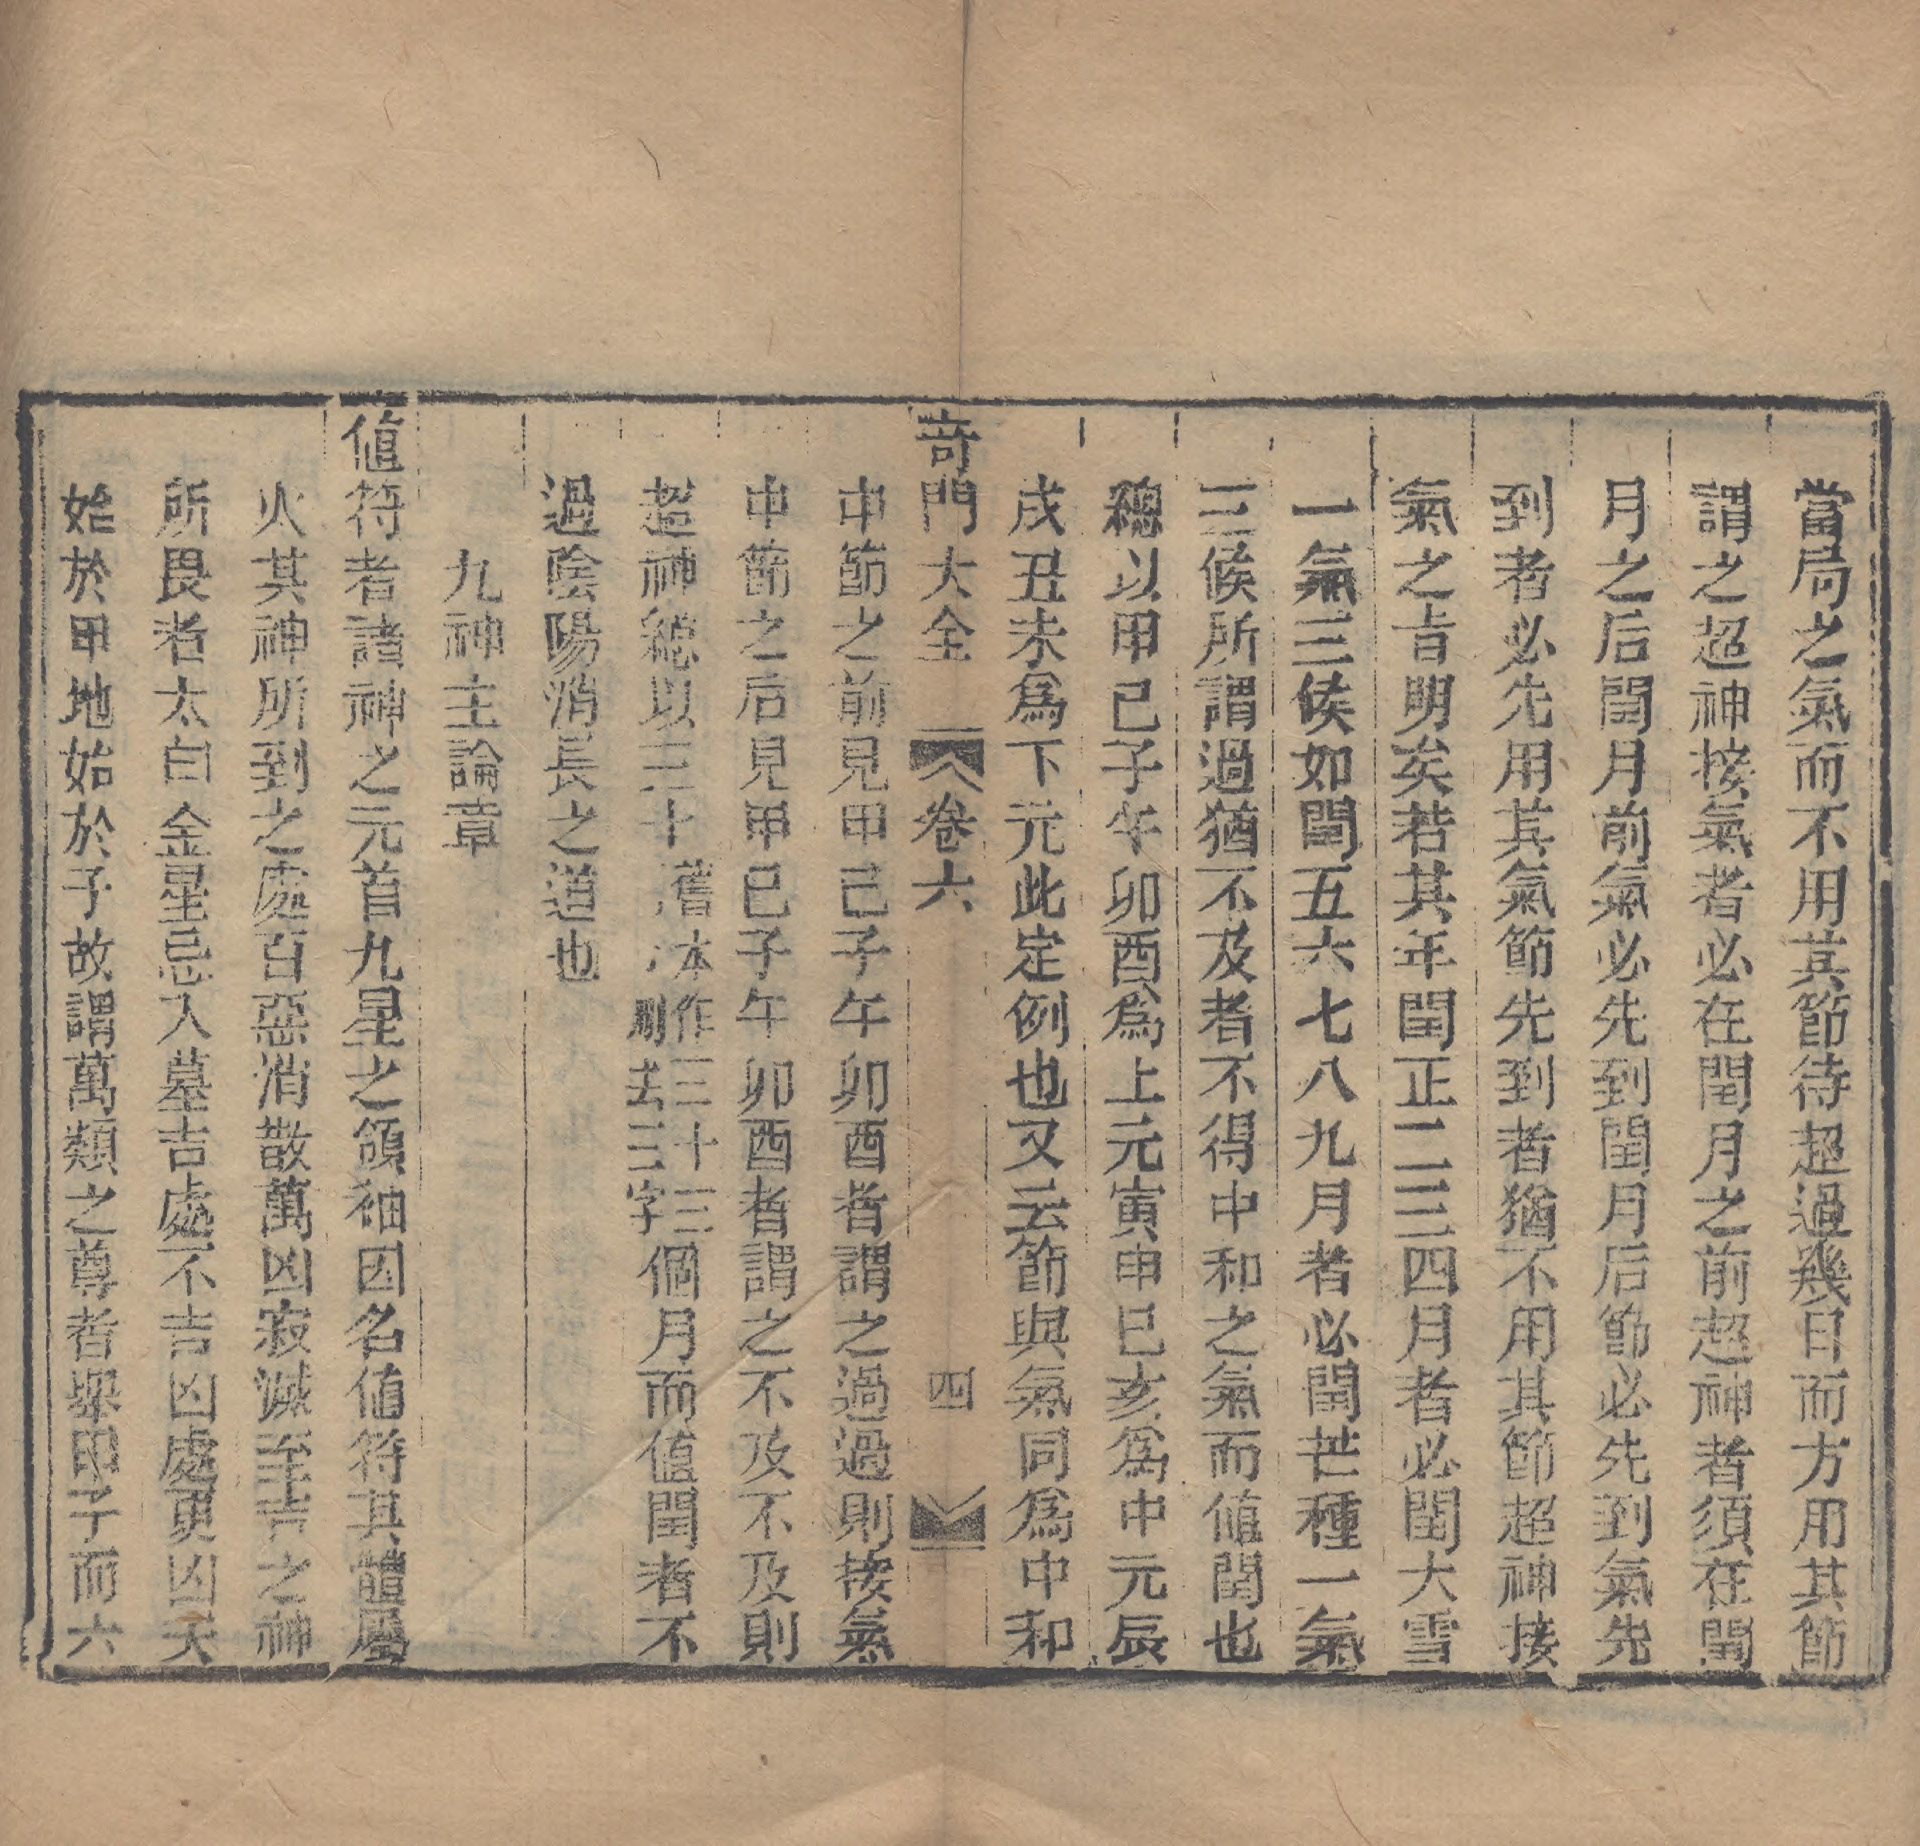 當局之氣而不用其節待超過幾日而方用其節
謂之超神接氣者必在閏月之前超神者須在閏
月之后閏月前氣必先到閏月后節必先到氣先
到者必先用其氣節先到者猶不用其節超神接
氣之旨明矣若其年閏正二三四月者必閏大雪
一氣三候如閏五六七八九月者必閏芒種一氣
三候所謂過猶不及者不得中和之氣而値閏也
總以甲己子午卯酉爲上元寅申巳亥爲中元辰
戌丑未爲下元此定例也又云節與氣同爲中和
奇門大全 卷六 四
中節之前見甲己子午卯酉者謂之過過則接氣
中節之后見甲己子午卯酉者謂之不及不及則
超神總以三十舊本作三十三刪去三字個月而値閏者不
過陰陽消長之道也
九神主論章
値符者諸神之元首九星之領袖因名値符其體屬
火其神所到之處百惡消散萬凶寂滅至吉之神
所畏者太白金星忌入墓吉處不吉凶處更凶天
始於甲地始於子故謂萬類之尊者舉甲子而六